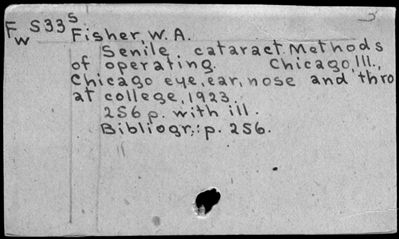 Fw S33s
Fisher, W. A.
Senile cataract. Methods
of operating. Chicago Ill.,
Chicago eye, ear, nose and thro
at college, 1923.
256 p. with ill.
Bibliogr.: p. 256.